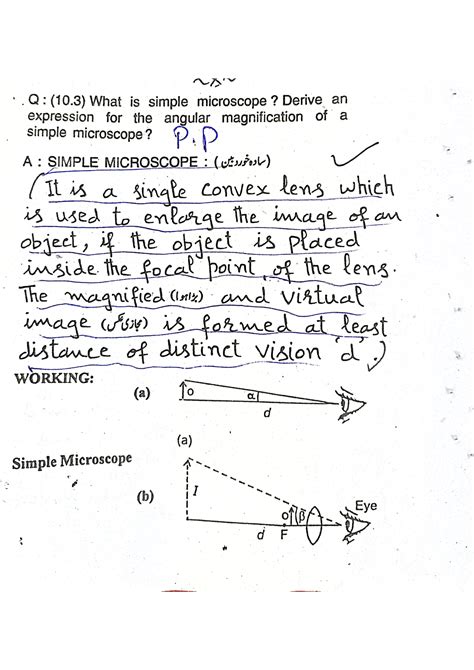 Q : (10.3) What is simple microscope ? Derive an
expression for the angular magnification of a
simple microscope ? P.P
A : SIMPLE MICROSCOPE : (سادہ خوردبین)
(It is a single convex lens which
is used to enlarge the image of an
object, if the object is placed
inside the focal point of the lens.
The magnified (بڑا) and virtual
image is formed at least
distance of distinct vision 'd'.)
WORKING:
(a) O α d
(a)
Simple Microscope
(b) I O β Eye
d F